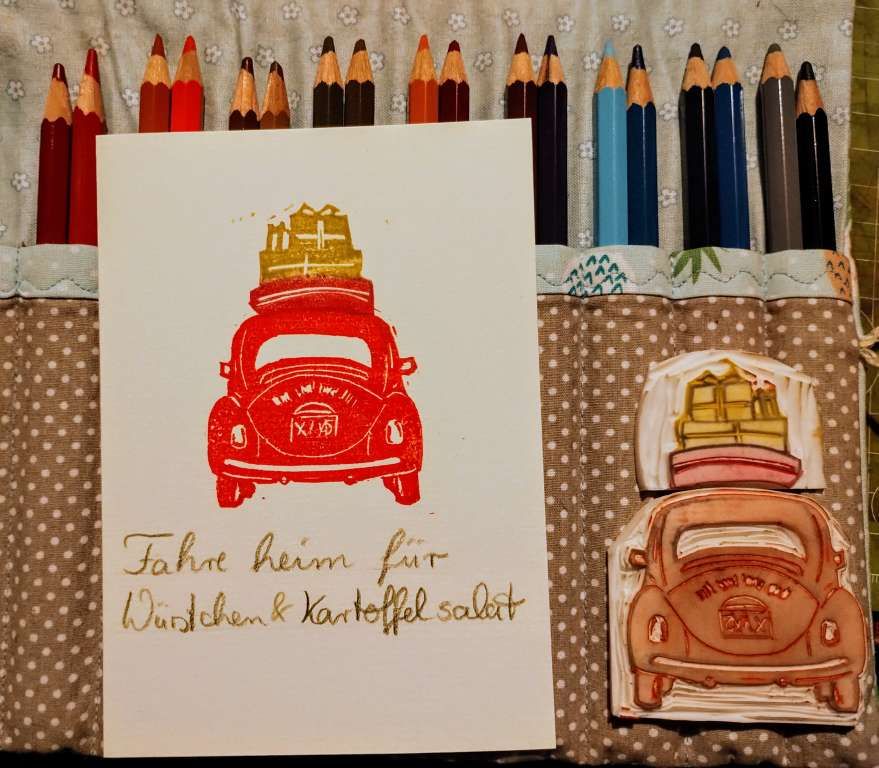 Fahre heim für
Würstchen & Kartoffelsalat